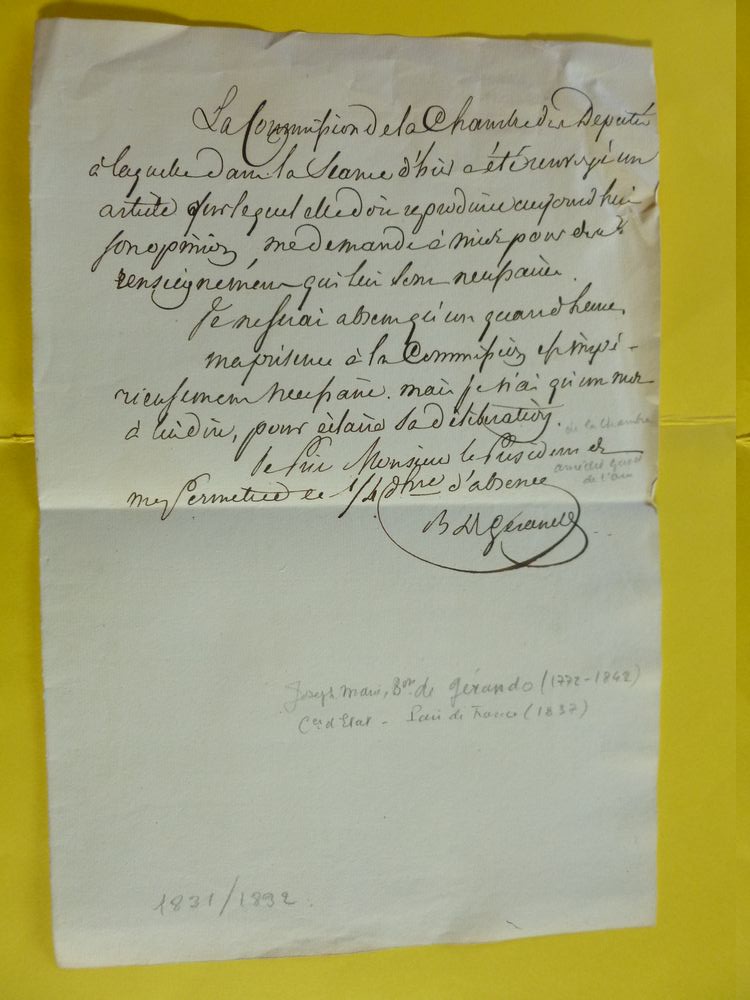 La Commission de la Chambre des Députés
à laquelle dans la Séance d'hier a été renvoyé un
article sur lequel elle doit reproduire aujourd'hui
son opinion, me demande à moi pour des
renseignemens qui lui sont nécessaires.
Je ne serai absent qu'un quart d'heure,
ma présence à la Commission est impé-
rieusement nécessaire. mais je n'ai qu'un mot
à lui dire, pour éclairer sa délibération.
de la Chambre
Je prie Monsieur le Président de
me permettre ce 1/4 d'hre d'absence
de l'an
B De Gérando
Joseph Marie, Bon de Gérando (1772-1842)
Cer d'Etat - Pair de France (1837)
1831/1832.